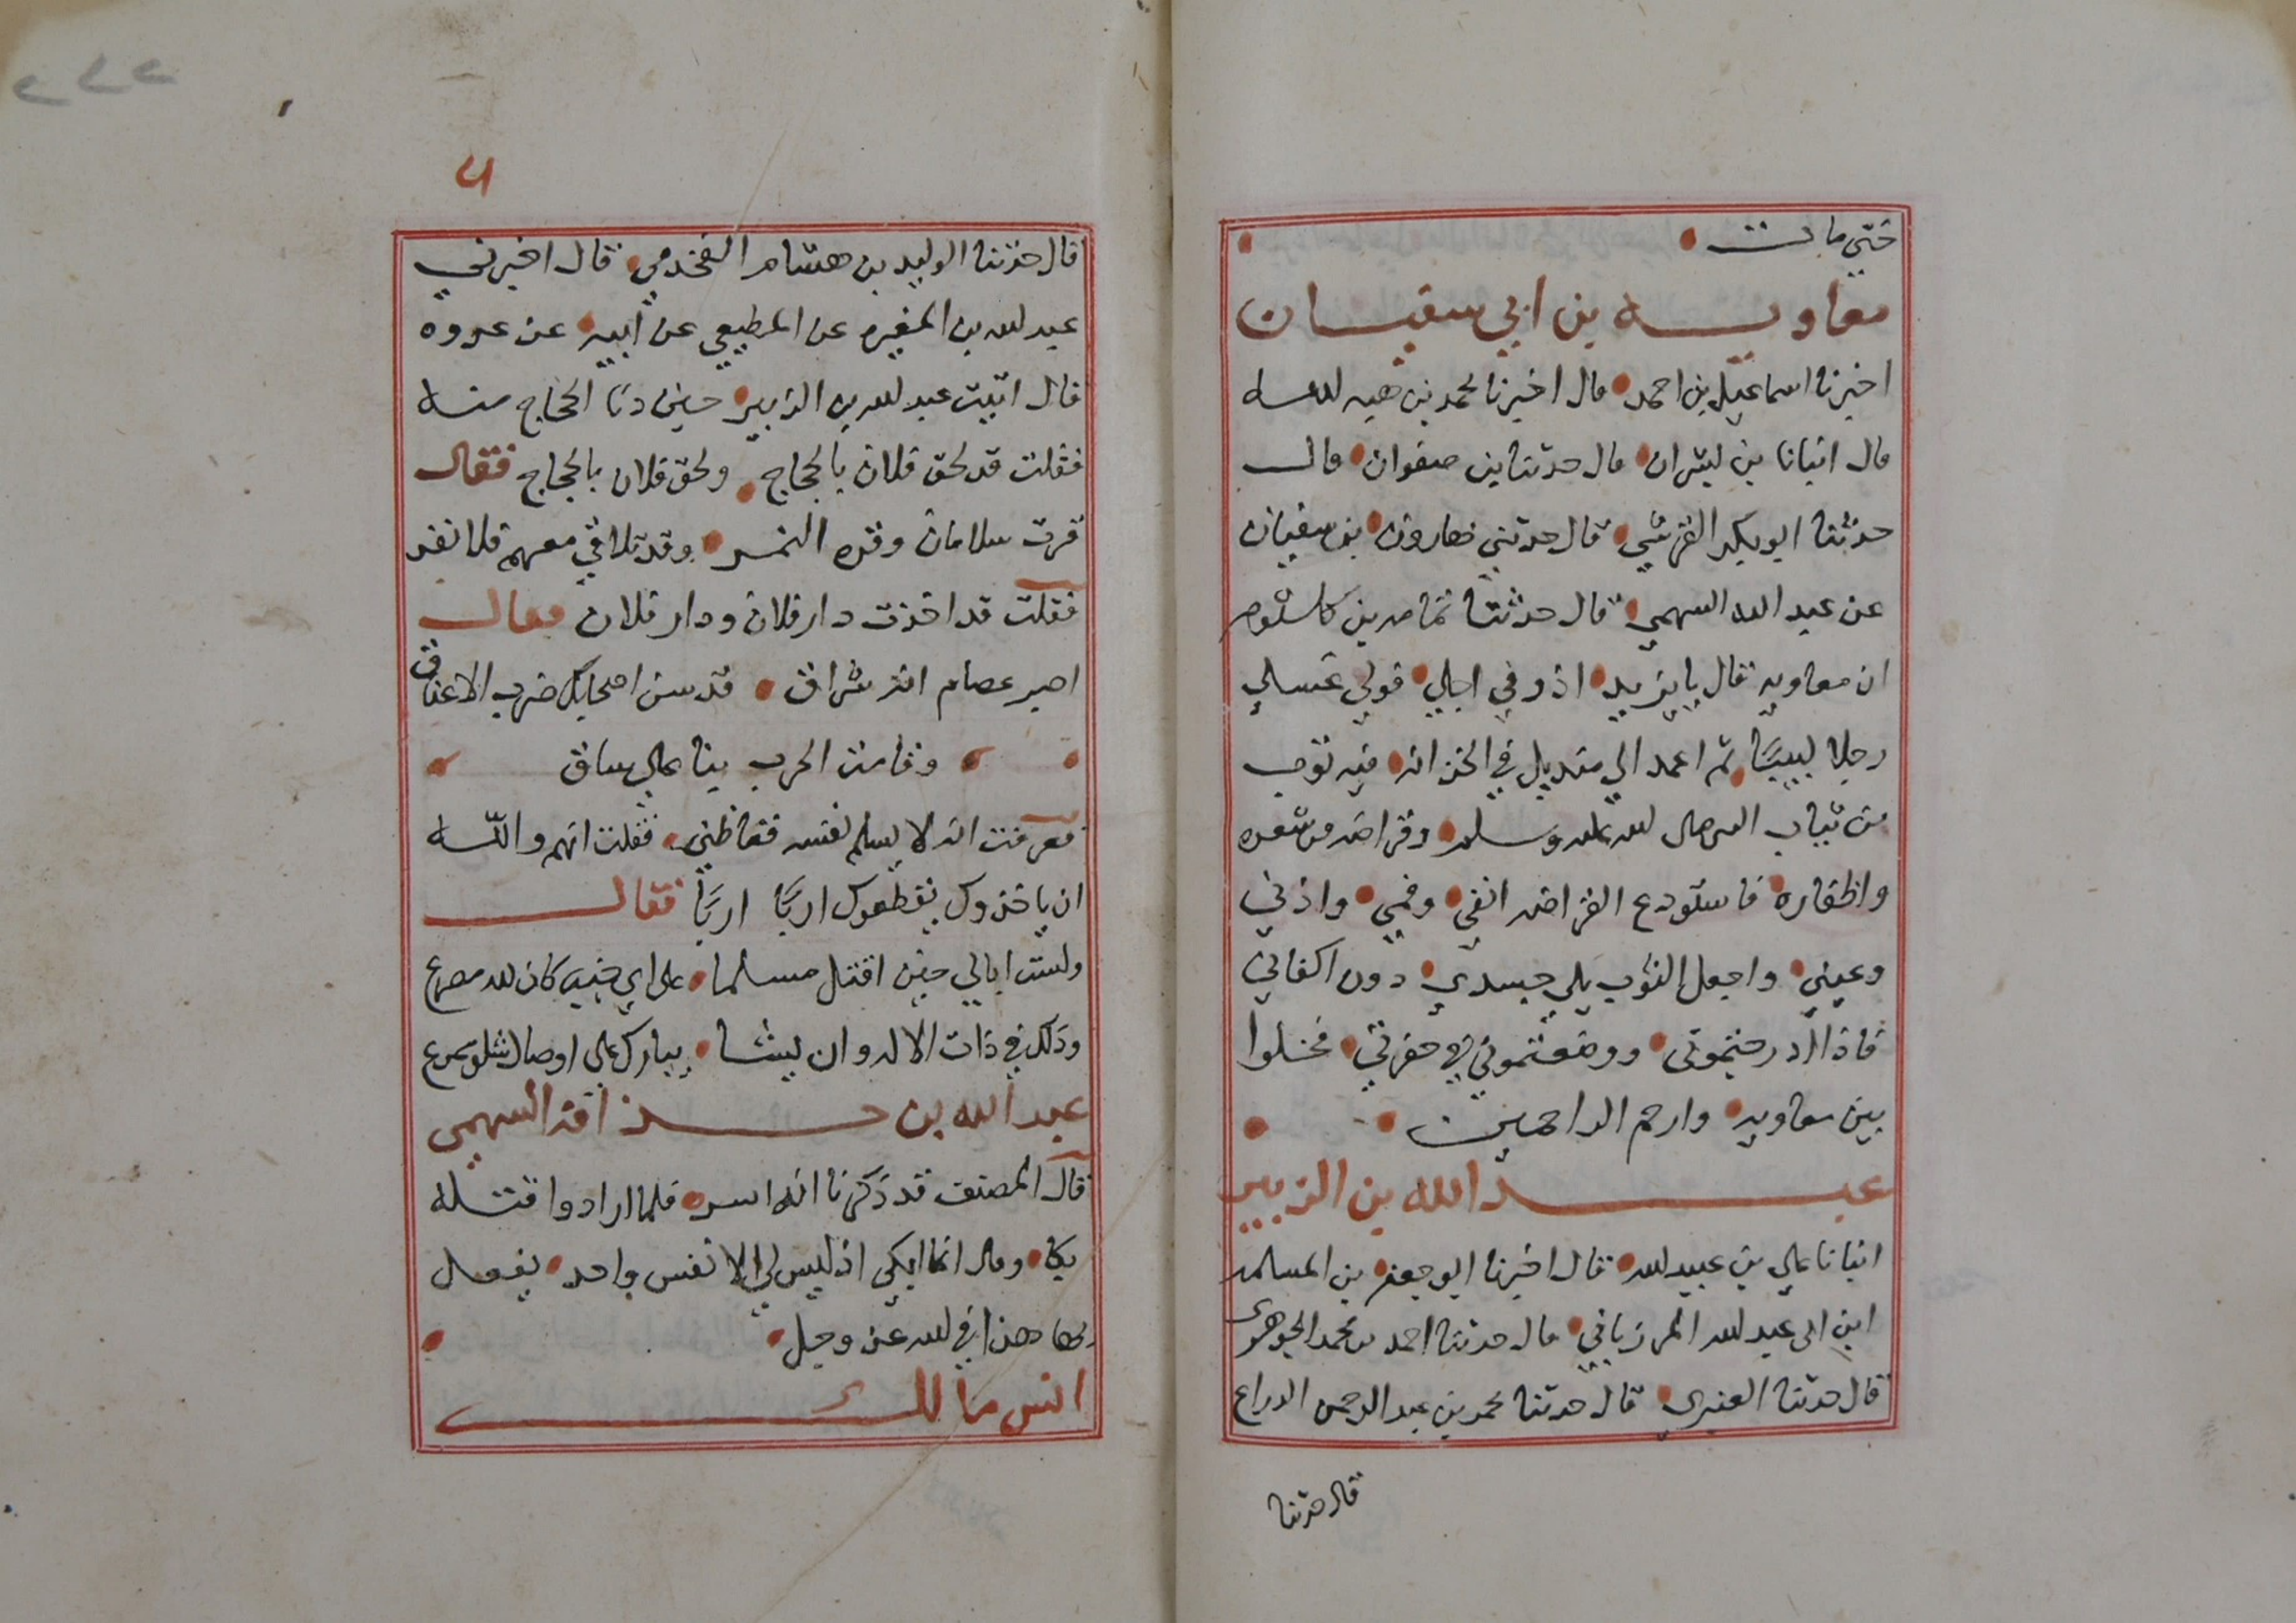 حتي مات
معاويه بن ابي سفيان
اخبرنا اسماعيل بن احمد قال اخبرنا محمد بن هبه الله
قال انبانا بن بشران قال حدثنا بن صفوان قال
حدثنا ابو بكر القرشي قال حدثني هارون بن سفيان
عن عبد الله السهمي قال حدثنا ثمامه بن كلثوم
ان معاويه قال يا يزيد اذ وفي اجلي فولي غسلي
رجلا لبيبا ثم اعمد الي منديل في الخزانه فيه ثوب
من ثياب النبي صلى الله عليه وسلم وقراضه من شعره
واظفاره فاستودع القراضه انفي وفمي واذني
وعيني واجعل الثوب يلي جسدي دون اكفاني
فاذا ادرجتموني ووضعتموني في حفرتي فخلوا
بين معاويه وارحم الراحمين
عبد الله بن الزبير
انبانا علي بن عبيد الله قال اخبرنا ابو جعفر بن المسلمه
ابن ابي عبد الله المرزباني قال حدثنا احمد بن محمد الجوهري
قال حدثنا العنبري قال حدثنا محمد بن عبد الرحمن الدراع
قال حدثنا
٦
قال حدثنا الوليد بن هشام القخدمي قال اخبرني
عبد الله بن المغيره عن المطيعي عن ابيه عن عروه
قال اتيت عبد الله بن الزبير حين دنا الحجاج منه
فقلت قد لحق فلان بالحجاج ولحق فلان بالحجاج فقال
فرت سلامان وفره النمر وقد تلاقي معهم فلا نفر
فقلت قد اخذت دار فلان ودار فلان فقال
اصبر عصام انه شراق قد سن اصحابك ضرب الاعناق
وقامت الحرب بنا علي ساق
فعرفت انه لا يسلم نفسه فغاظني فقلت انهم والله
ان ياخذوك يقطعوك اربا اربا فقال
ولست ابالي حين اقتل مسلما على اي جنب كان لله مصرع
وذلك في ذات الاله وان يشا يبارك على اوصال شلو ممزع
عبد الله بن حذافه السهمي
قال المصنف قد ذكرنا انه اسر فلما ارادوا قتله
بكا وقال انما ابكي اذ ليس لي الا نفس واحد يفعل
بها هذا في الله عز وجل
انس مالك